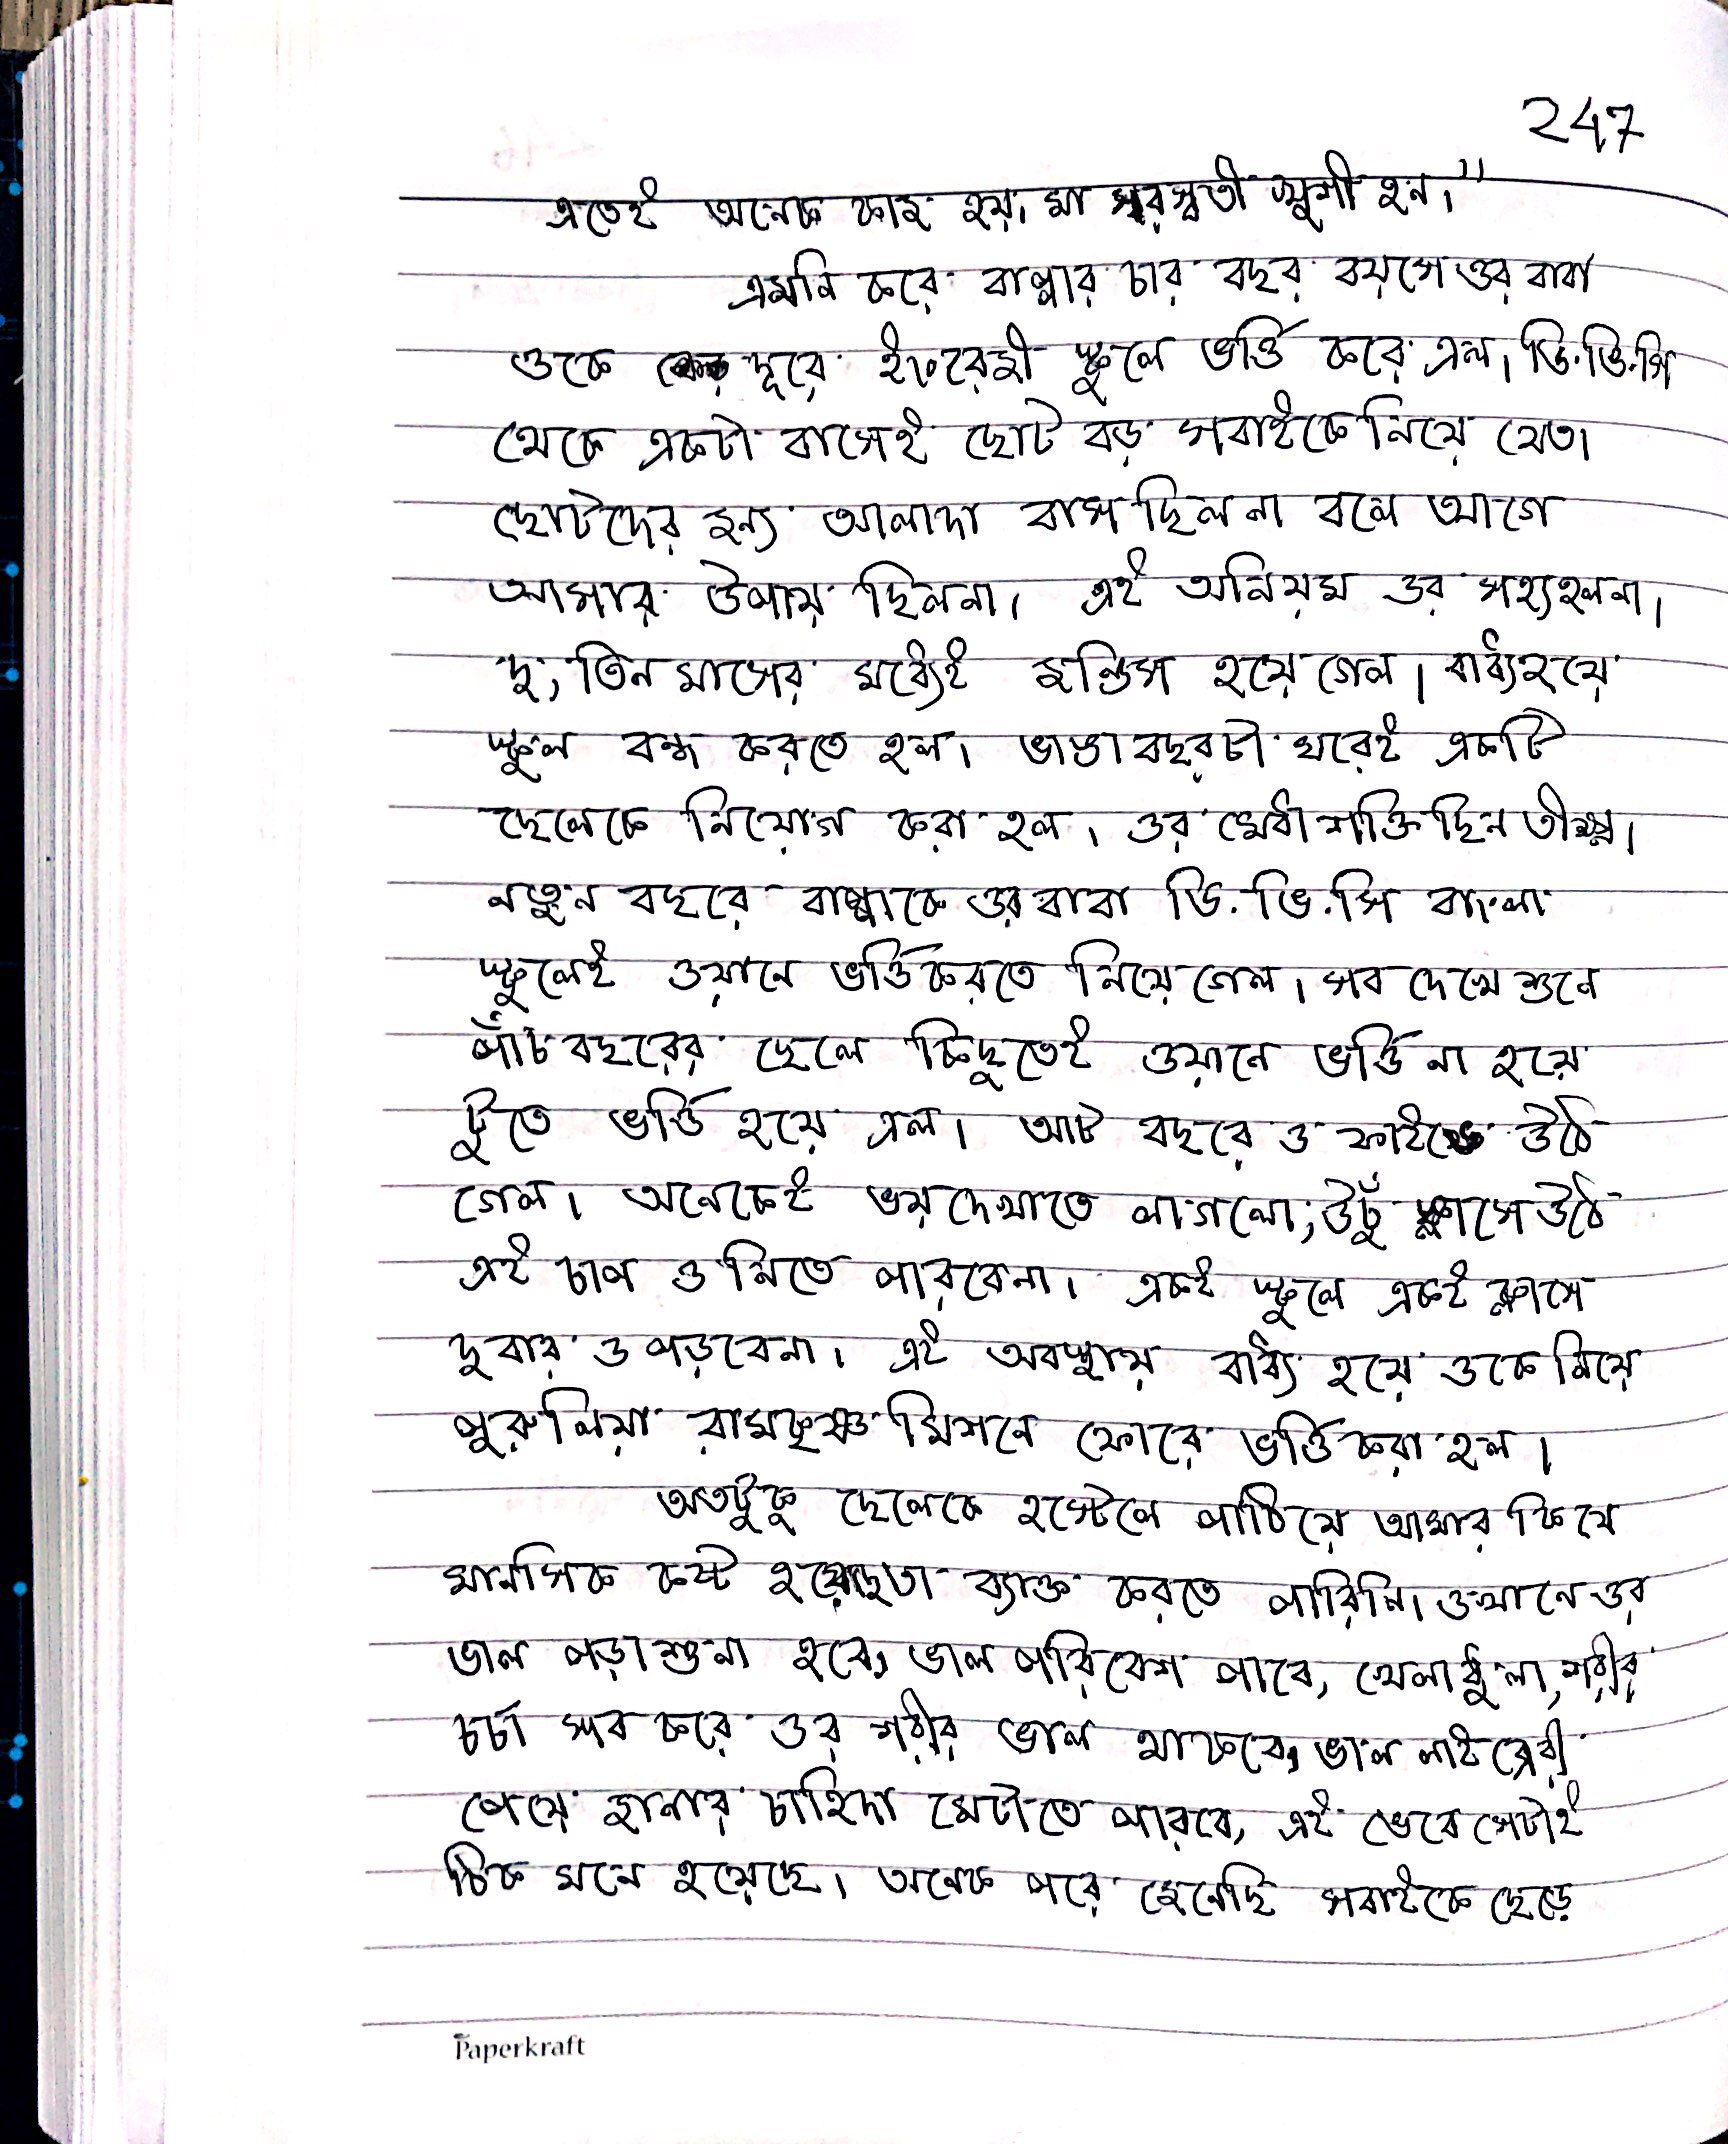 247
এতেই অনেক কাজ হয়, মা স্বরস্বতী খুশী হন।"
এমনি করে বাপ্পার চার বছর বয়সে ওর বাবা
ওকে দূরে ইংরেজী স্কুলে ভর্ত্তি করে এল। ডি.ভি.সি
থেকে একটা বাসেই ছোট বড় সবাইকে নিয়ে যেত।
ছোটদের জন্য আলাদা বাস ছিলনা বলে আগে
আসার উপায় ছিলনা। এই অনিয়ম ওর সহ্য হলনা।
দু, তিন মাসের মধ্যেই জন্ডিস হয়ে গেল। বাধ্য হয়ে
স্কুল বন্ধ করতে হল। ভাঙা বছরটা ঘরেই একটি
ছেলেকে নিয়োগ করা হল। ওর মেধাশক্তি ছিল তীক্ষ্ণ।
নতুন বছরে বাপ্পাকে ওর বাবা ডি.ভি.সি বাংলা
স্কুলেই ওয়ানে ভর্ত্তি করতে নিয়ে গেল। সব দেখে শুনে
পাঁচ বছরের ছেলে কিছুতেই ওয়ানে ভর্ত্তি না হয়ে
টুতে ভর্ত্তি হয়ে এল। আট বছরে ও ফাইভে উঠে
গেল। অনেকেই ভয় দেখাতে লাগলো, উঁচু ক্লাসে উঠে
এই চাপ ও নিতে পারবেনা। একই স্কুলে একই ক্লাসে
দুবার ও পড়বেনা। এই অবস্থায় বাধ্য হয়ে ওকে নিয়ে
পুরুলিয়া রামকৃষ্ণ মিশনে ফোরে ভর্ত্তি করা হল।
অতটুকু ছেলেকে হস্টেলে পাঠিয়ে আমার কি যে
মানসিক কষ্ট হয়েছে তা ব্যাক্ত করতে পারিনি। ওখানে ওর
ভাল পড়াশুনা হবে, ভাল পরিবেশ পাবে, খেলাধুলা, শরীর
চর্চা সব করে ওর শরীর ভাল থাকবে, ভাল লাইব্রেরী
পেয়ে জানার চাহিদা মেটাতে পারবে, এই ভেবে সেটাই
ঠিক মনে হয়েছে। অনেক পরে জেনেছি সবাইকে ছেড়ে
Paperkraft